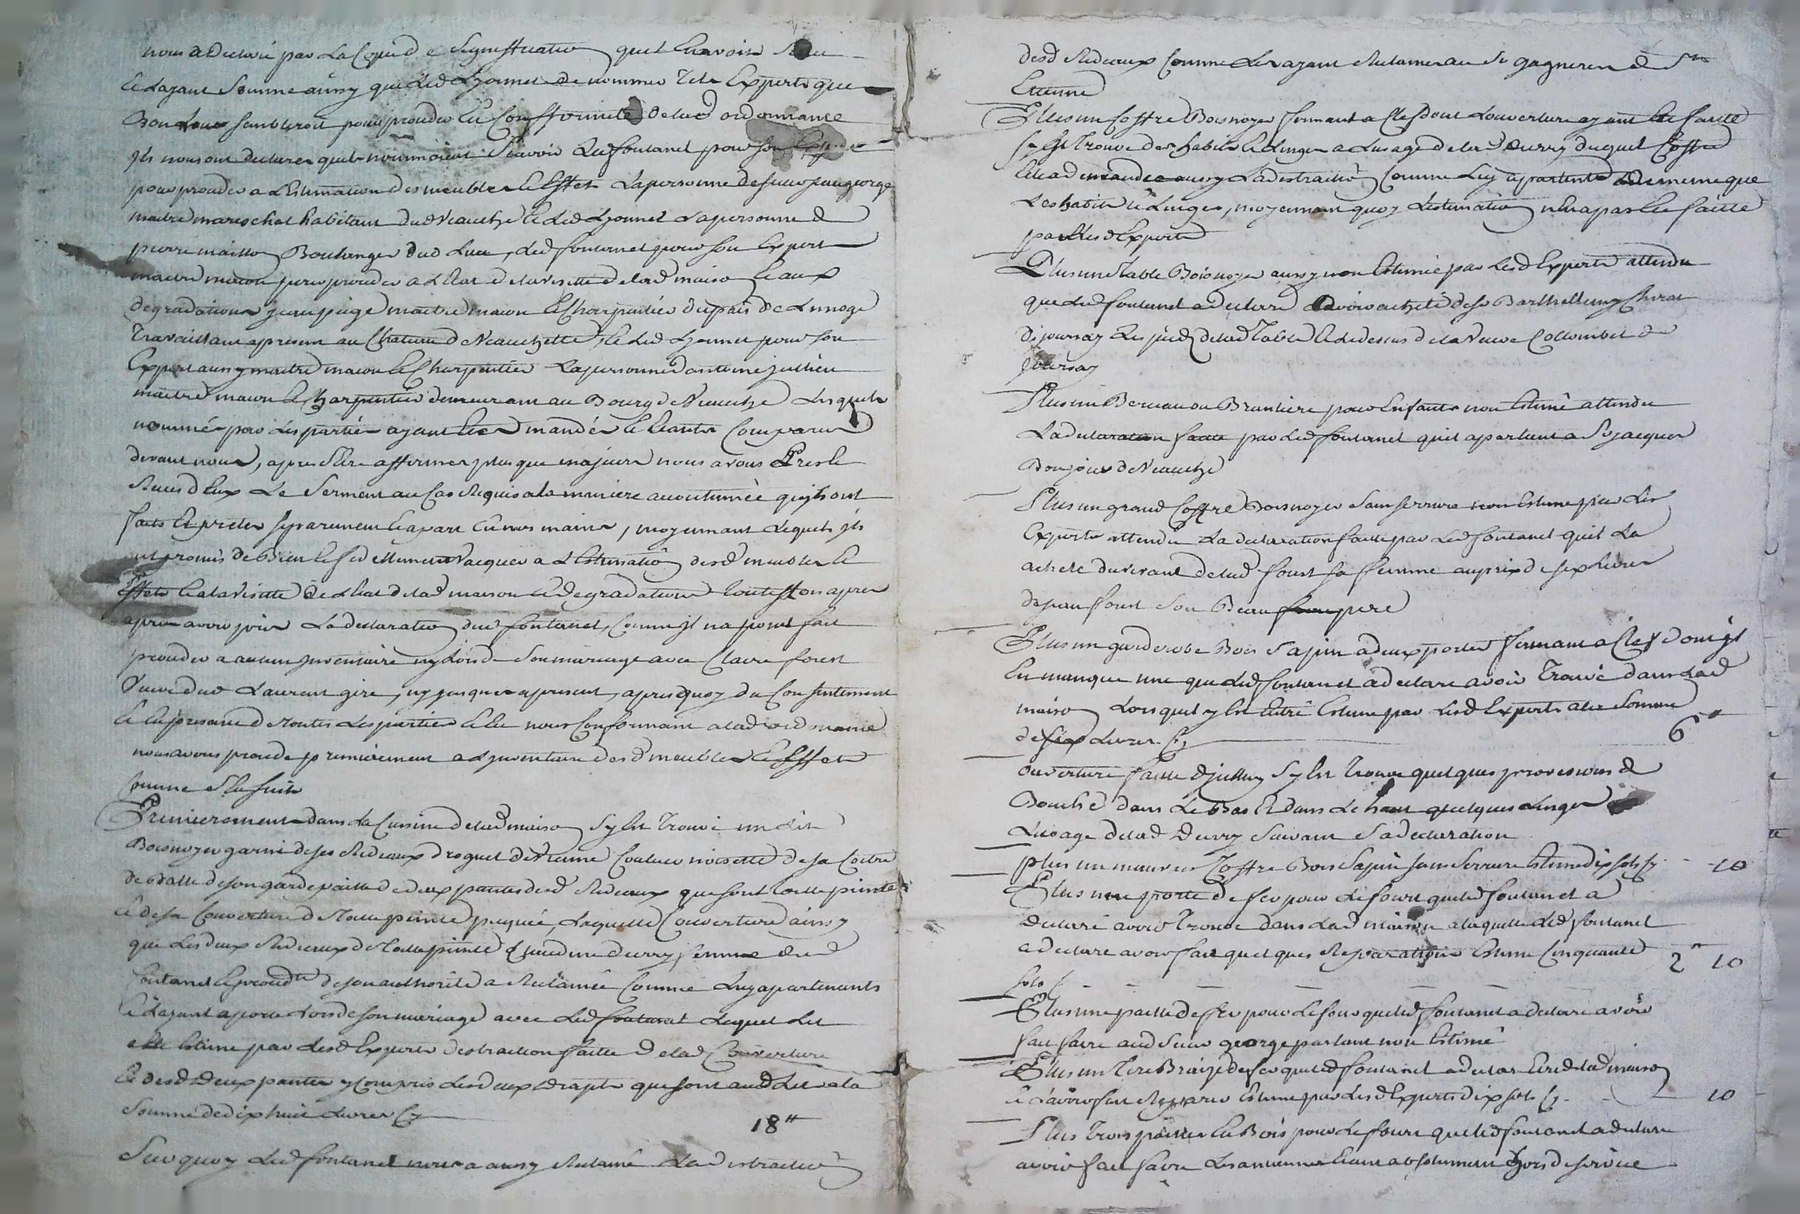 nous a declaré par la Copie de signiffication quil en avoit
et layant sommé aussy que led Lyonnet de nommer tels Experts que
Bon leur sembleroit pour proceder en Conformité de lad ordonnance
ils nous ont declarer quils nommoient sçavoir led fontanel pour son Expert
pour proceder a L'Estimation des meubles et Effets la personne de sieur jean george
maitre mareschal habitant dud Veauche et led Lyonnet la personne de
pierre maisso Boulenger dud lieu, led fontanel pour son Expert
maitre macon pour proceder a l'Etat de la visitte de lad maison et aux
degradations jean maitre macon et Charpentier du pais de Limoge
Travaillant apresent au Chateau de Veauchette, et led Lyonnet pour son
Expert aussy maitre macon et Charpentier la personne d'antoine jullien
maitre macon et Charpentier demeurant au Bourg de Veauche Lesquels
nommés par les parties ayant Eté mandés et Comparus
devant nous, apres s'etre affirmer plus que majeurs nous avons Pris et
Receu d'Eux Le Serment au Cas Requis a la maniere accoutumée quils ont
faits Et preter separement et apart En nos mains, moyennant Lequel ils
ont promis de Bien et fidellement vacquer a L'Estimatio desd meubles et
Effets et a la visitte de l'Etat de lad maison et degradations
apres avoir la declaratio dud fontanel, Comme il na point fait
proceder a aucun Inventaire ny lors de son mariage avec Claire forest
veuve dud Laurent gire, ny jusques apresent, apres quoy du Consentement
et En presance de toutes Les parties et En nous Conformant a lad ordonnance
nous avons procede premierement a L'Inventaire desd meubles et Effets
Comme s'Ensuit
Premierement dans la Cuisine de lad maison s'y Est trouvé un Lit
Bois noyer garni de ses Rideaux droguet de Couleur noisette de sa Coitre
de Balle de son garde paille de deux pantes desd Rideaux que sont toille peinte
et de sa Couverture de toille peinte piquée, Laquelle Couverture ainsy
que Les deux Rideaux de toille peinte Claudine Devry femme dud
fontanel et procedte de son authorité a Reclamée Comme luy apartenants
et layant aporté Lors de son mariage avec Led fontanel Lequel Lit
a Eté Estimé par Lesd Experts distraction faitte de lad Couverture
et desd deux pantes y Compris Les deux draps que sont aud Lit a la
somme de dix huit Livres Cy
18"
Sur quoy Led fontanel nous a aussy Reclamé La distractio
desd Rideaux Comme Les ayant Reclamer au Sr gagneres de St
Etienne
Plus un Coffre Bois noyer fermant a Clef dont Louverture ayant Eté faitte
s'y Est Trouvé des habits et Linges a Lusage de lad Devry, duquel Coffre
Elle a demandée aussy La distraction Comme Luy apartenant de meme que
Les habits et Linges, moyennant quoy L'estimatio n'En a pas Eté faitte
par Lesd Experts
Plus une Table Bois noyer aussy non Estimée par Lesd Experts attendu
que Led fontanel a declaré avoir acheté de Sr Barthellemy Chirat
de joursay Les pieds de lad Table et le dessus de la Veuve Collombet de
joursay
Plus un Berceau ou Brantiere pour Enfants non Estimé attendu
La declaration faitte par Led fontanel quil apartient a Sr jacques
Bonjour de Veauche
Plus un grand Coffre Bois noyer sans serrure non Estimé par Les
Experts attendu La declaration faitte par Led fontanel quil La
acheté du vivant de lad forest sa femme au prix de six Livres
de jean forest son Beau pere
Plus un garderobe Bois Sapin a deux portes fermant a Clef dont il
En manque une que Led fontanel a declaré avoir Trouvé dans Lad
maiso Lorsquil y Est Entré Estimé par Lesd Experts a la somme
de six Livres Cy
6"
ouverture faitte d'icelluy s'y Est Trouvé quelques provisions de
Bouche dans Le Bas Et dans Le haut quelques Linges
Lusage de lad Devry suivant sa declaration
plus un mauvais Coffre Bois Sapin sans serrure Estimé dix sols Cy
10
Plus une porte de fer pour Le four que Led fontanel a
declaré avoir Trouvé dans Lad maison a laquelle Led fontanel
a declaré avoir fait quelques Reparations Estimé Cinquante
sols
2" 10
Plus une paelle de fer pour Le four que Led fontanel a declaré avoir
fait faire aud Sieur george partant non Estimé
Plus un Tire Braize de fer que Led fontanel a declaré Etre de lad maiso
et l'avoir fait Reparer Estimé par Lesd Experts dix sols Cy
10
Plus Trois paelles En Bois pour Le four que Led fontanel a declaré
avoir fait faire Les anciennes Etant absolument hors de service